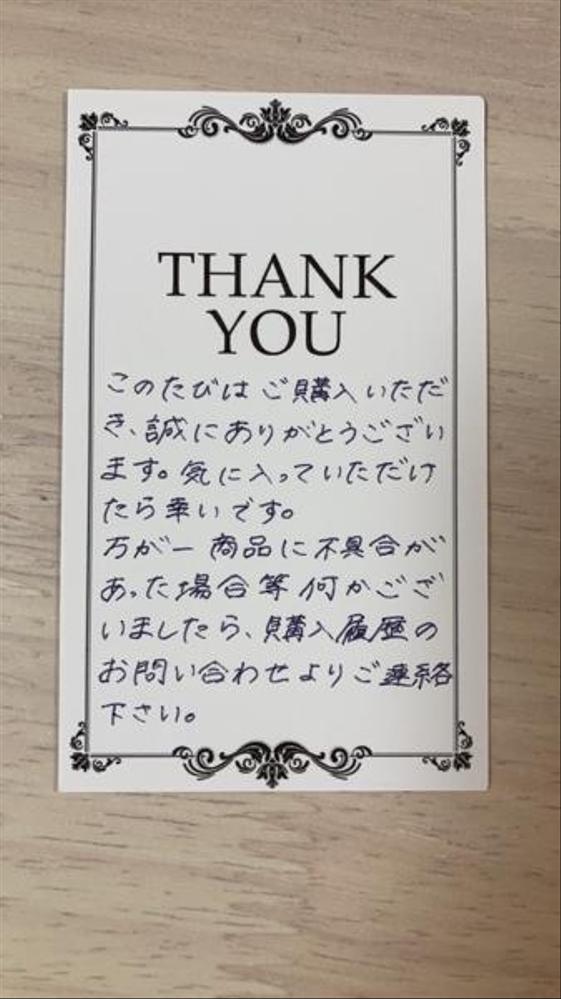 THANK
YOU
このたびは ご購入いただ
き、誠にありがとうござい
ます。気に入っていただけ
たら幸いです。
万が一 商品に不具合が
あった場合等 何かござ
いましたら、購入履歴の
お問い合わせよりご連絡
下さい。